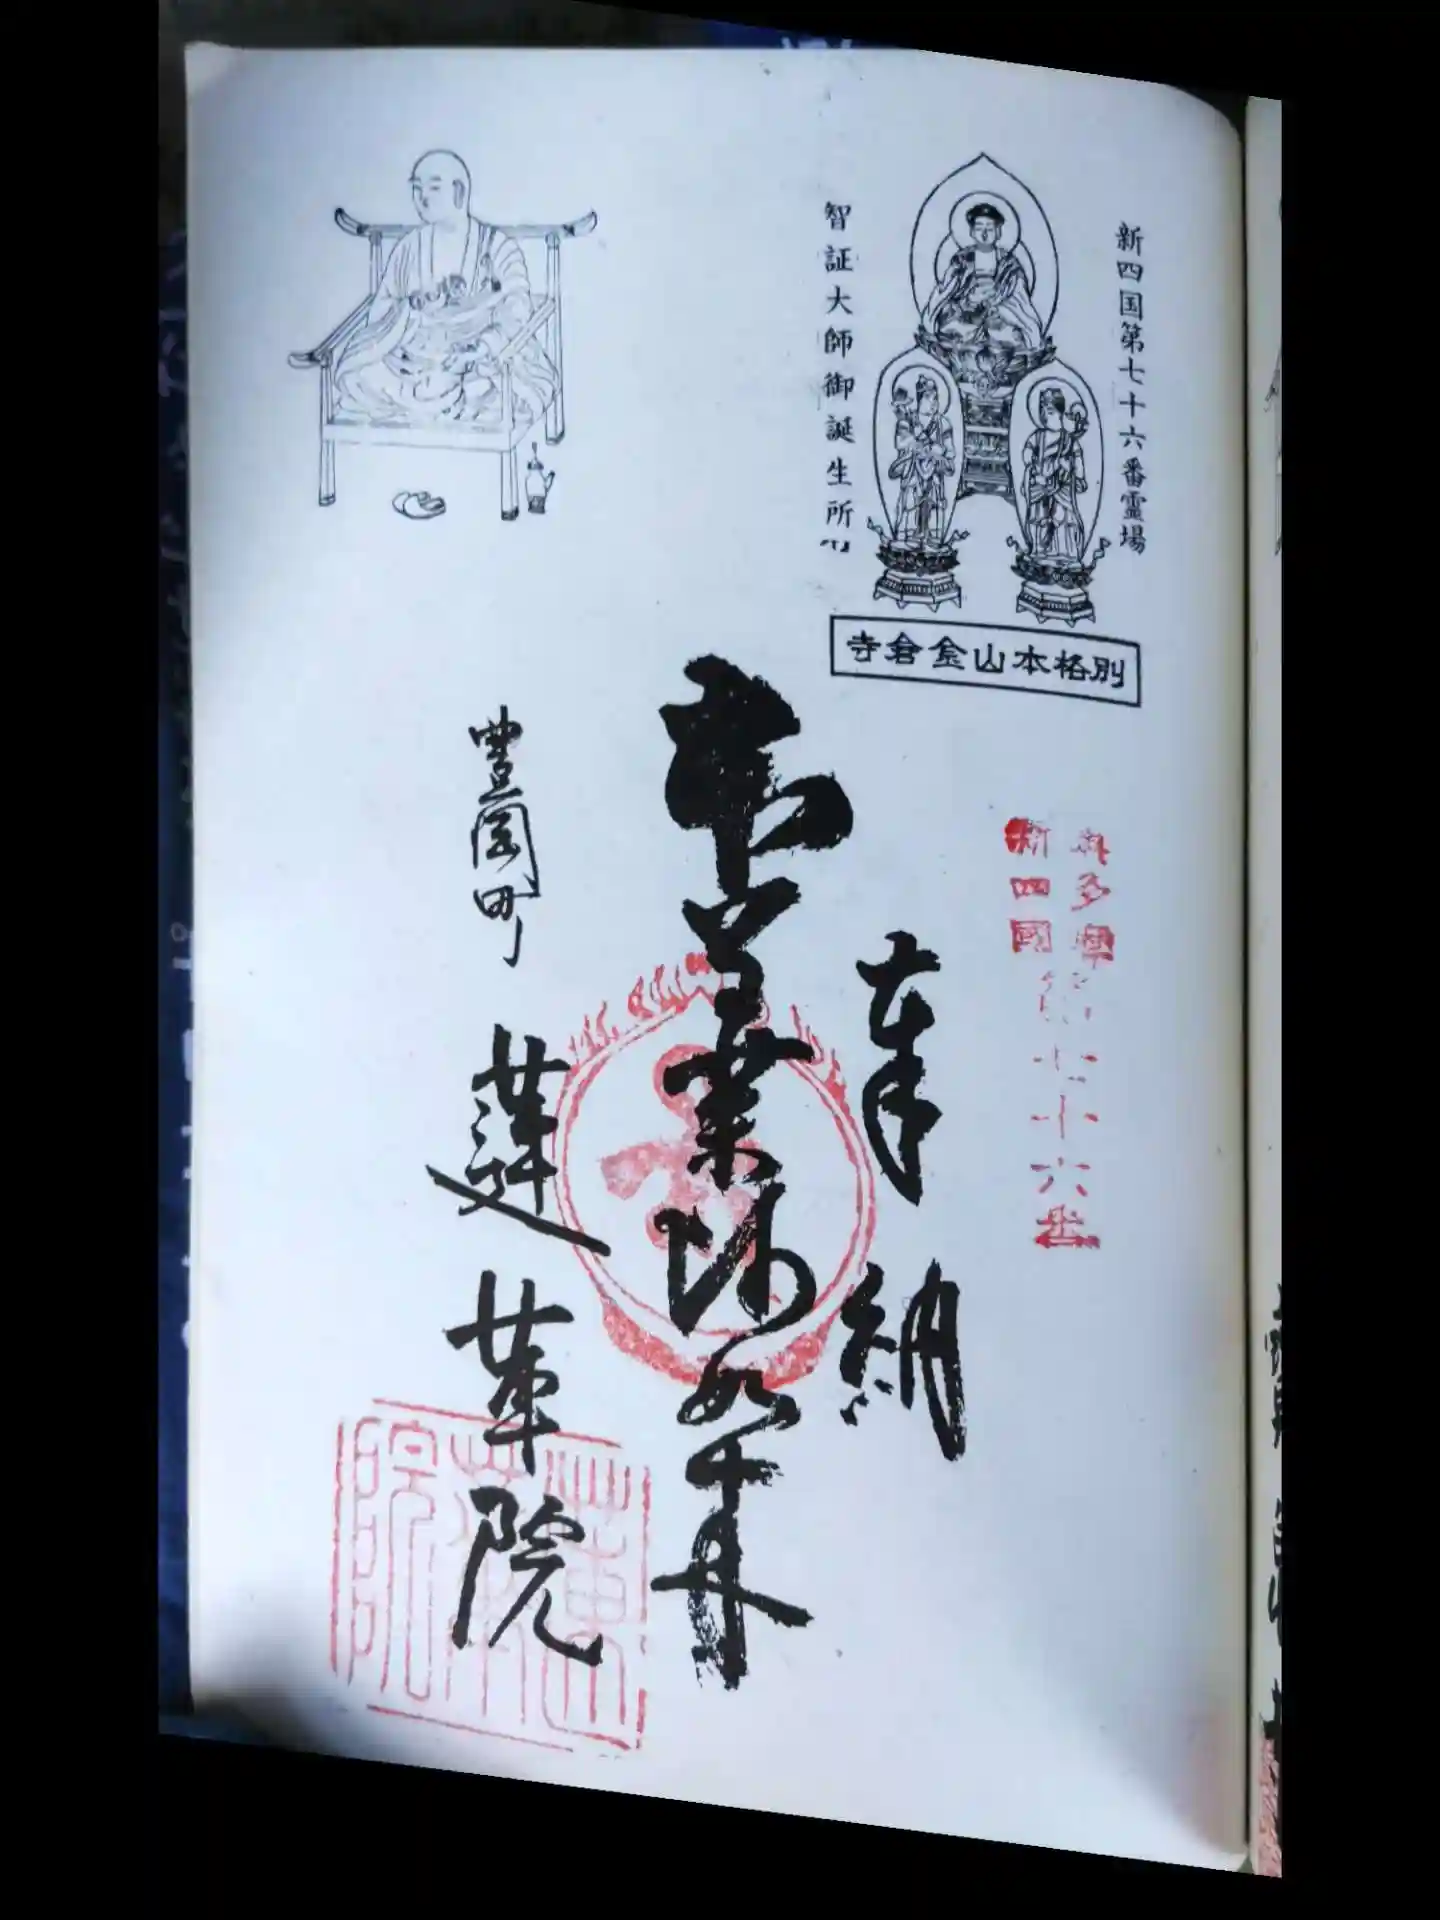 新四国第七十六番霊場
智証大師御誕生所
寺倉金山本格別
新四國
七十六番
奉納
本尊薬師如来
豊岡町
蓮華院
蓮華院